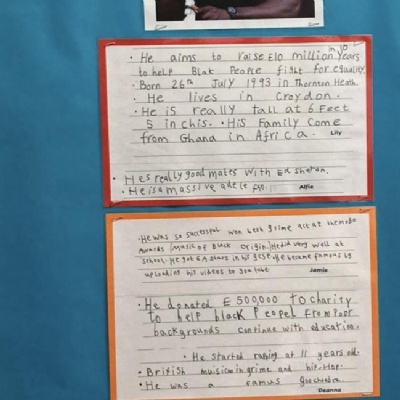 • He aims to raise £10 million in 10 years
to help Blak People fight for equality
• Born 26th July 1993 in Thornton Heath.
• He lives in Croydon.
• He is really tall at 6 Feet
5 in chis. • His Family Come
from Ghana in Africa. Lily
• He's really good mates with Ed sheran.
• He is a massive adele fan. Alfie
• He was so successful won best grime act at the mobo
Awards (Music of Black Origin). He did very well at
school. He got 6 A stars in his gcse. He became famous by
uploading his videos to youtube Jamie
• He donated £500,000 to charity
to help black Peopel From Poor
backgrounds continue with education.
• He started raping at 11 years old.
• British music in grime and hip-Hop.
• He was a famus
Deanna